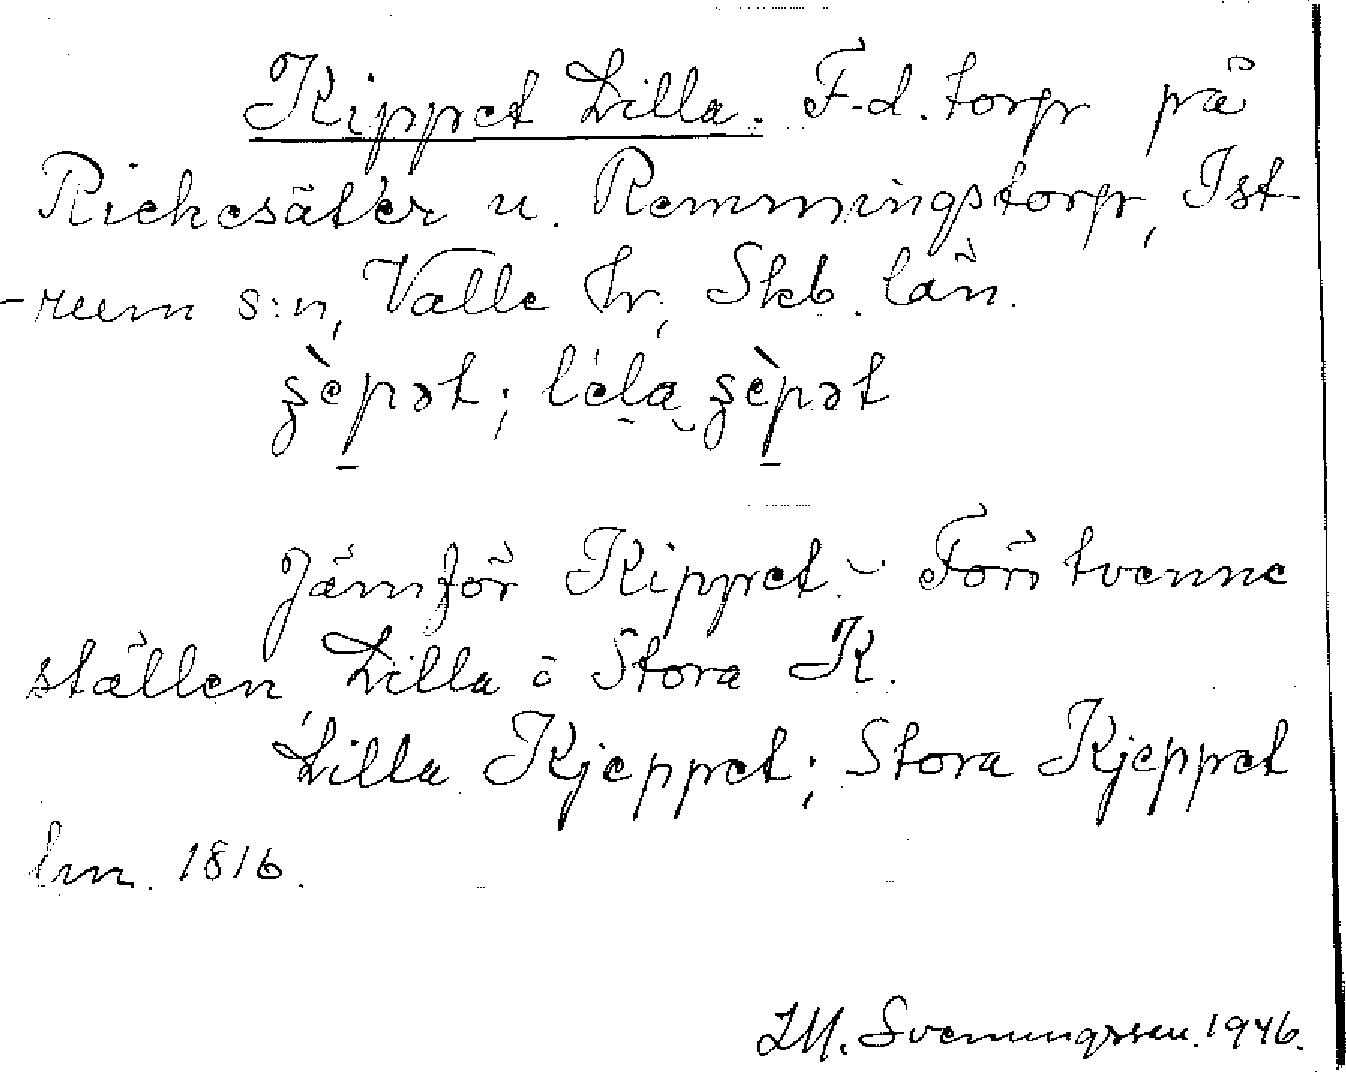 Kippet Lilla. F.d. torp på
Rickesäter u. Remmingstorp, Ist-
-rum s:n, Valle hr, Skb. län.
Jämför Kippet. - Förr tvenne
ställen, Lilla o Stora K.
Lilla Kjeppet; Stora Kjeppet
lm. 1816.
LM. Svenungsson. 1946.